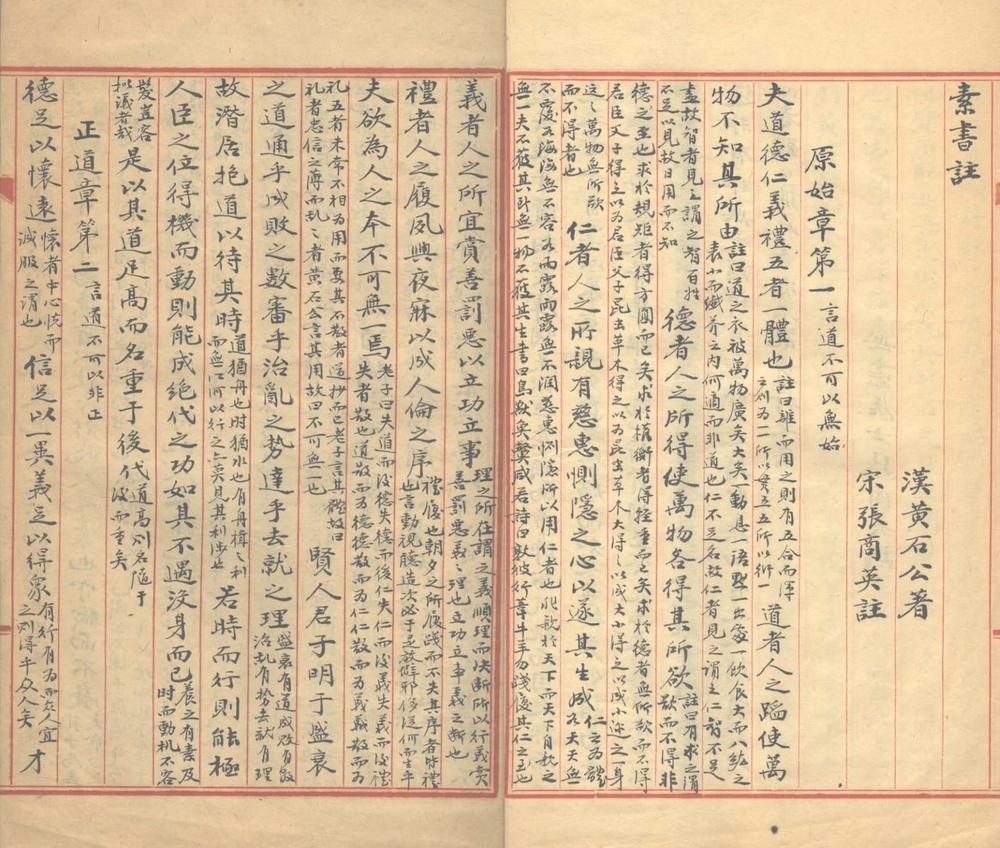 素書註
漢黃石公著
宋張商英註
原始章第一 言道不可以無始
夫道德仁義禮五者一體也 註曰離而用之則有五合而渾之則為一所以貫五五所以衍一 道者人之蹈使萬
物不知其所由 註曰道之衣被萬物廣矣大矣一動息一語默一出處一飲食大而八紘之表小而纖芥之内何適而非道也仁不足名故仁者見之謂之仁智不足
盡故智者見之謂之智百姓不足以見故日用而不知 德者人之所得使萬物各得其所欲 註曰有求之謂欲欲而不得非
德之至也求於規矩者得方圓而已矣求於權衡者得輕重而已矣求於德者無所欲而不得君臣父子得之以為君臣父子昆虫草木得之以為昆虫草木大得之以成大小得之以成小迩之一身
遠之萬物無所欲而不得者也 仁者人之所親有慈惠惻隱之心以遂其生成 仁之為體如天天無
不覆如海海無不容如雨露雨露無不潤慈惠惻隱所以用仁者也非親於天下而天下自親之無一夫不獲其所無一物不獲其生書曰鳥獸魚鱉咸若詩曰敦彼行葦牛羊勿踐履其仁之至也
義者人之所宜賞善罰惡以立功立事 理之所在謂之義順理而決斷所以行義賞善罰惡義之理也立功立事義之斷也
禮者人之履夙興夜寐以成人倫之序 禮履也朝夕之所履踐而不失其序者皆禮也言動視聽造次必于是放僻邪侈從何而生乎
夫欲為人之本不可無一焉 老子曰失道而後德失德而後仁失仁而後義失義而後禮失者散也道散而為德德散而為仁仁散而為義義散而為
礼五者未常不相為用而要其不散者道抄而已老子言其體故曰礼者忠信之薄而乱之者黄石公言其用故曰不可無一也 賢人君子明于盛衰
之道通乎成敗之數審乎治亂之勢達乎去就之理 盛衰有道成敗有數治乱有勢去就有理
故潛居抱道以待其時 道猶舟也时猶水也有舟楫之利而無江河以行之亦莫見其利涉也 若時而行則能極
人臣之位得機而動則能成絶代之功如其不遇没身而已 養之有素及时而動机不容
髮豈容拟議者哉 是以其道足高而名重于後代 道高則名隨于後而重矣
正道章第二 言道不可以非正
德足以懷遠 懷者中心悦而誠服之謂也 信足以一異義足以得衆 有行有為而衆人宜之則得乎众人矣 才